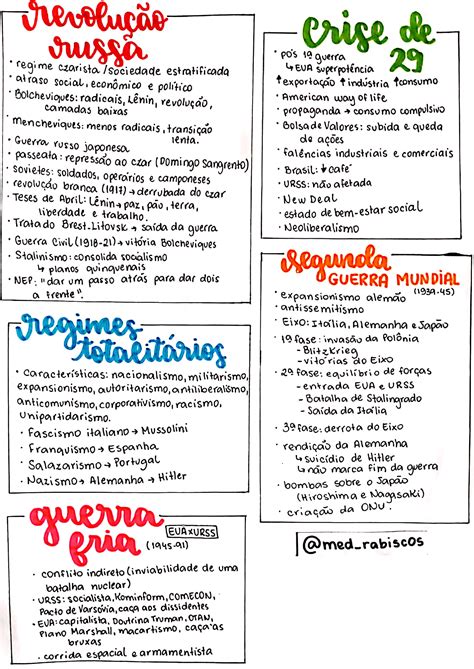 revolução
russa
• regime czarista/sociedade estratificada
• atraso social, econômico e político
• Bolcheviques: radicais, Lênin, revolução,
camadas baixas
• Mencheviques: menos radicais, transição
lenta.
• Guerra russo japonesa
• passeata: repressão ao czar (Domingo Sangrento)
• sovietes: soldados, operários e camponeses
• revolução branca (1917)→derrubada do czar
• Teses de Abril: Lênin→paz, pão, terra,
liberdade e trabalho.
• Tratado Brest-Litovsk→saída da guerra
• Guerra Civil (1918-21)→vitória Bolcheviques
• Stalinismo: consolida socialismo
↳ planos quinquenais
• NEP: "dar um passo atrás para dar dois
a frente".
regimes
totalitários
• Características: nacionalismo, militarismo,
expansionismo, autoritarismo, antiliberalismo,
anticomunismo, corporativismo, racismo,
unipartidarismo.
• Fascismo italiano→Mussolini
• Franquismo→Espanha
• Salazarismo→Portugal
• Nazismo→Alemanha→Hitler
guerra
fria
EUAxURSS
(1945-91)
• conflito indireto (inviabilidade de uma
batalha nuclear)
• URSS: socialista, Kominform, COMECON,
Pacto de Varsóvia, caça aos dissidentes
• EUA: capitalista, Doutrina Truman, OTAN,
Plano Marshall, macartismo, caça às
bruxas
• corrida espacial e armamentista
crise de
29
• pós 1ª guerra
↳ EUA superpotência
↑exportação ↑indústria ↑consumo
• American way of life
• propaganda→consumo compulsivo
• Bolsa de Valores: subida e queda
de ações
• falências industriais e comerciais
• Brasil: ↓café
• URSS: não afetada
• New Deal
• estado de bem-estar social
• Neoliberalismo
segunda
GUERRA MUNDIAL
(1939-45)
• expansionismo alemão
• antissemitismo
• Eixo: Itália, Alemanha e Japão
• 1ª fase: invasão da Polônia
- Blitzkrieg
- vitórias do Eixo
• 2ª fase: equilíbrio de forças
- entrada EUA e URSS
- Batalha de Stalingrado
- Saída da Itália
• 3ª fase: derrota do Eixo
• rendição da Alemanha
↳ suicídio de Hitler
↳ não marca fim da guerra
• bombas sobre o Japão
(Hiroshima e Nagasaki)
• criação da ONU
@med_rabiscos